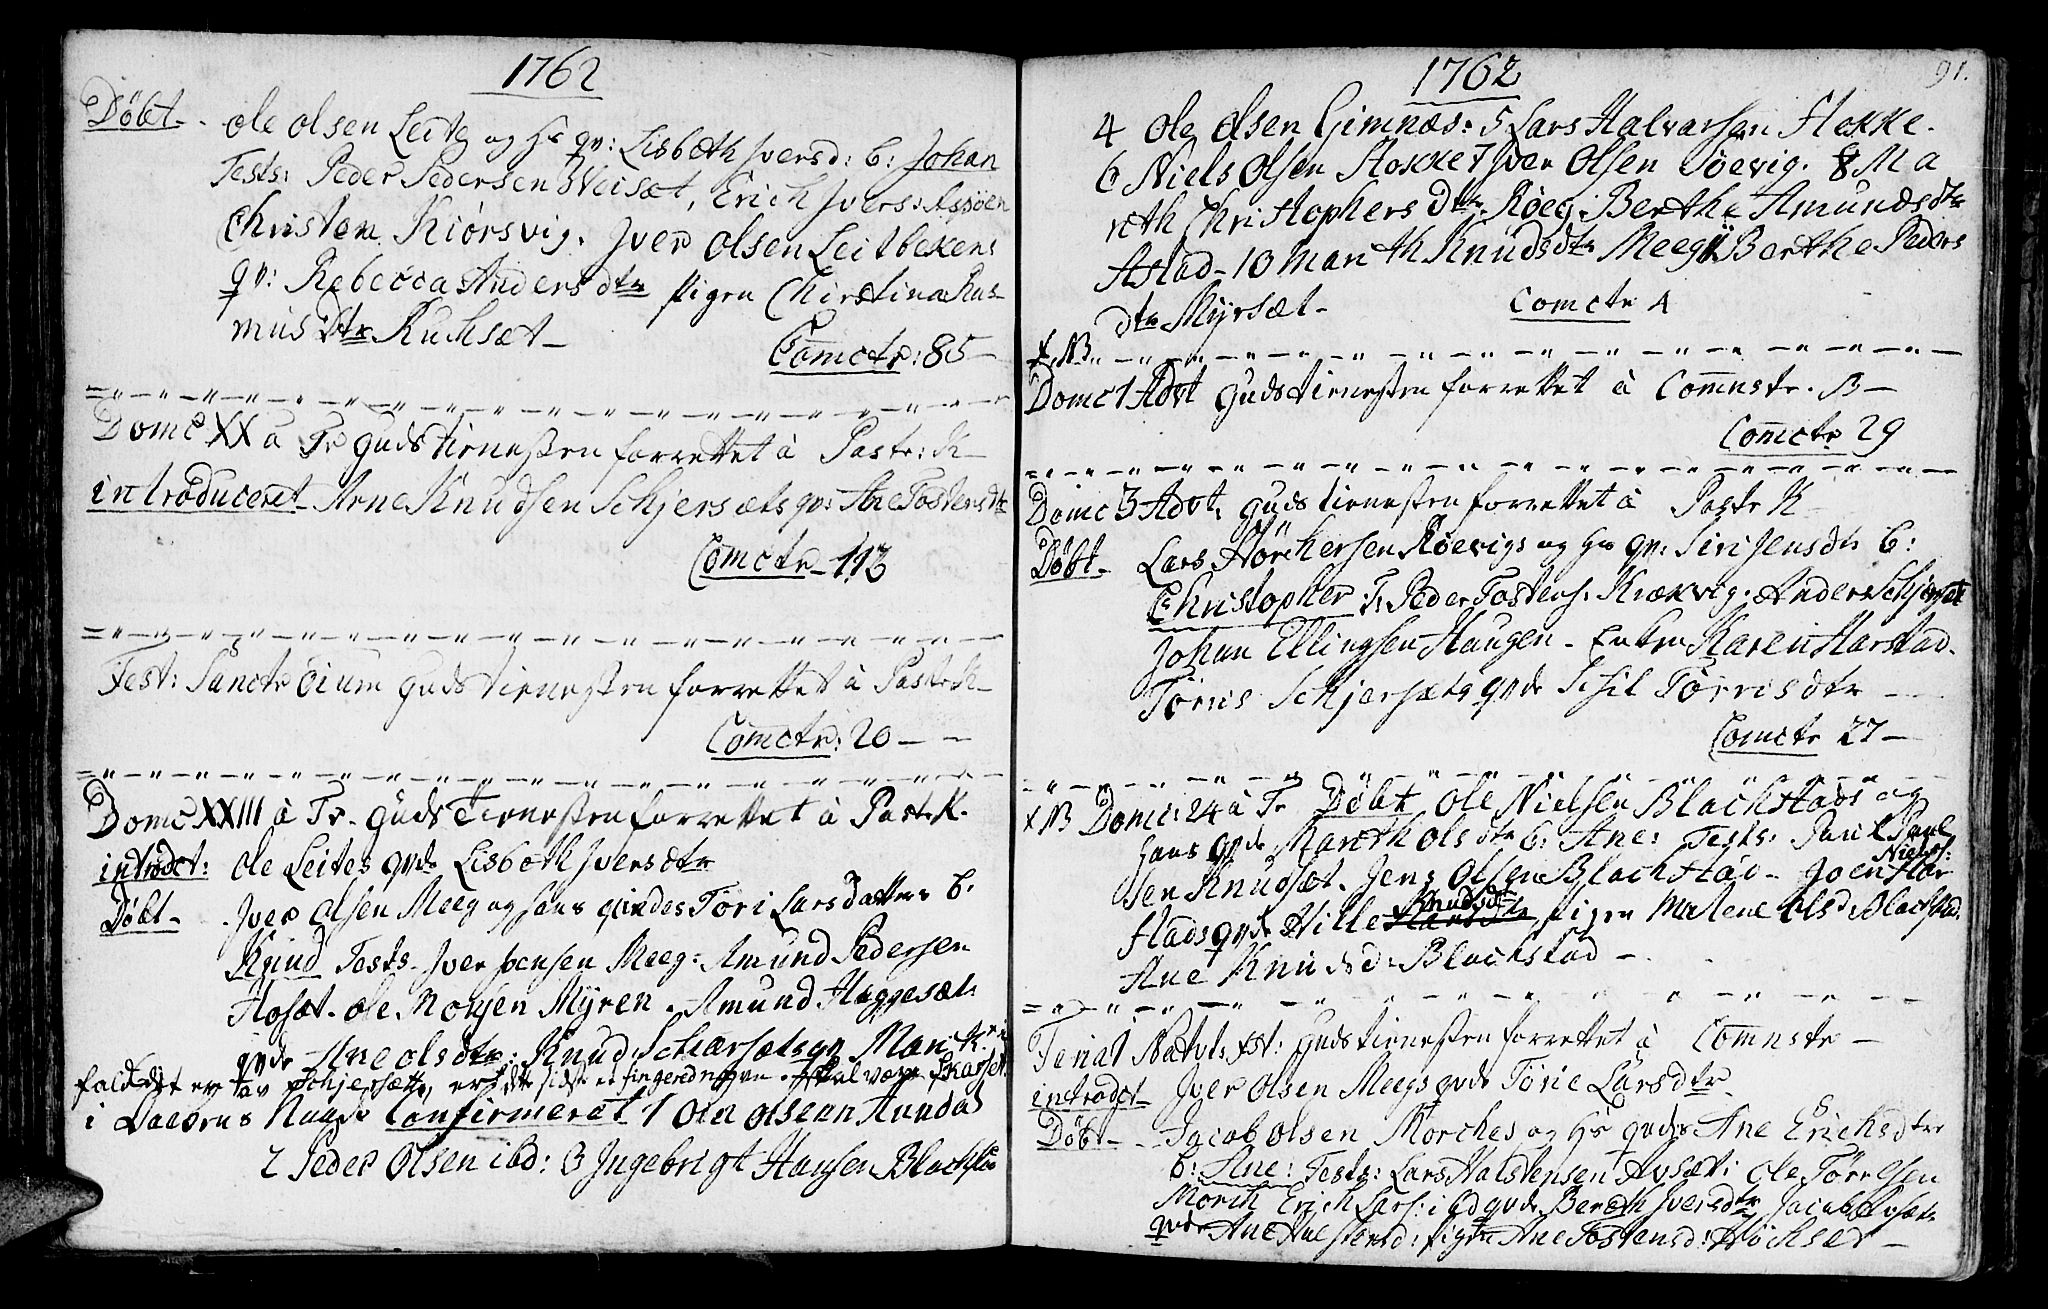 1762
Døbt - ole olsen Leite og Hs qv: Lisbeth Jversd: b: Johan
Tests: Peder Pedersen Weisæt, Erich Jvers: Assøen
Christen Kiørsvig. Jver Olsen Leitbekens
qv: Rebecca Anders dtr pigen Christina Ras-
mus Dtr Kuchsæt -
Comctr: 85 -
Domc XX a Tr Guds tienesten forrettet a Pastr: K -
introduceret - Arne Knudsen Schjersæts qv: Ane Tostensdtr
Comctr - 113
Fest: Sanctr oium guds tienesten forrettet a Pastr: K -
Comctr: 20 - -
Domc XXIII a Tr. guds Tienesten forrettet a Past: K.
introdct: Ole Leites qvde Lisbeth Jversdtr
Døbt - Jver Olsen Meeg og hans qvindes Töri Larsdatters b:
Knud Tests - Jver Jensen Meeg: Amund Pedersen
Hosæt - ole Monsen Myren. Amund Haggesæt
qvde Ane olsdtr: Knud Schiærsæts qv Marith
faldet er av Schjersætte, er sidste fingeren skal være Skarset
i Daabens Naade Confirmeret 1 Ole olsen Aundal
2 Peder Olsen ibd: 3 Jngebrigt Hansen Blachstad
1762 91.
4 Ole Olsen Gimnæs: 5 Lars Halvarsen Stokke.
6 Niels Olsen Stokke 7 Jver Olsen Søevig. 8 Ma
reth Christophers Dtr Røeg. Berthe Amundsdtr
Astad - 10 Marith Knudsdtr Meeg 11 Berthe Peders
dtr Myrsæt - Comctr 4
x NB
Domc 1 Advt Guds tienesten forrettet a Comnstr. B -
Comctr 29
Domc 3 Advt. guds tienesten forrettet a Pastr K
Døbt - Lars Störchersen Røevigs og Hs qv: Siri Jensdtr b:
Christopher: T: Peder Tostens: Krækvig. Anders Schjerset
Johan Ellingsen Haugen - Enken Karen Harstad.
Törris Schjersæts qvde Sisil Törris dtr -
Comctr 27 -
x NB Domc: 24 a Tr Døbt Ole Nielsen Blachstads og
hans qvde Mareth olsdtr b: Ane: Tests: Poul Poul
sen Knudsæt. Jens Olsen Blachstad - Joen Niels: Har
stads qvde Hille Knudsd pigen Malene olsd: Blachstad.
Ane Knudsd: Blachstad -
Feria 1 Natvt. xst: Gudstienesten forrettet a Comnstr -
introdct - Jver Olsen Meegs qvde Törie Larsdtr
Døbt - Jacob olsen Morches og Hs qvde Ane Ericksdtr
b: Ane: Tests: Lars Halstensen Avsæt: Ole Törresen
Morck Erich Lars: ibd qvde Bereth Jversdtr Jacob Avsæt
qvde Ane Halstensd: pigen Ane Tostensd: Høchset -